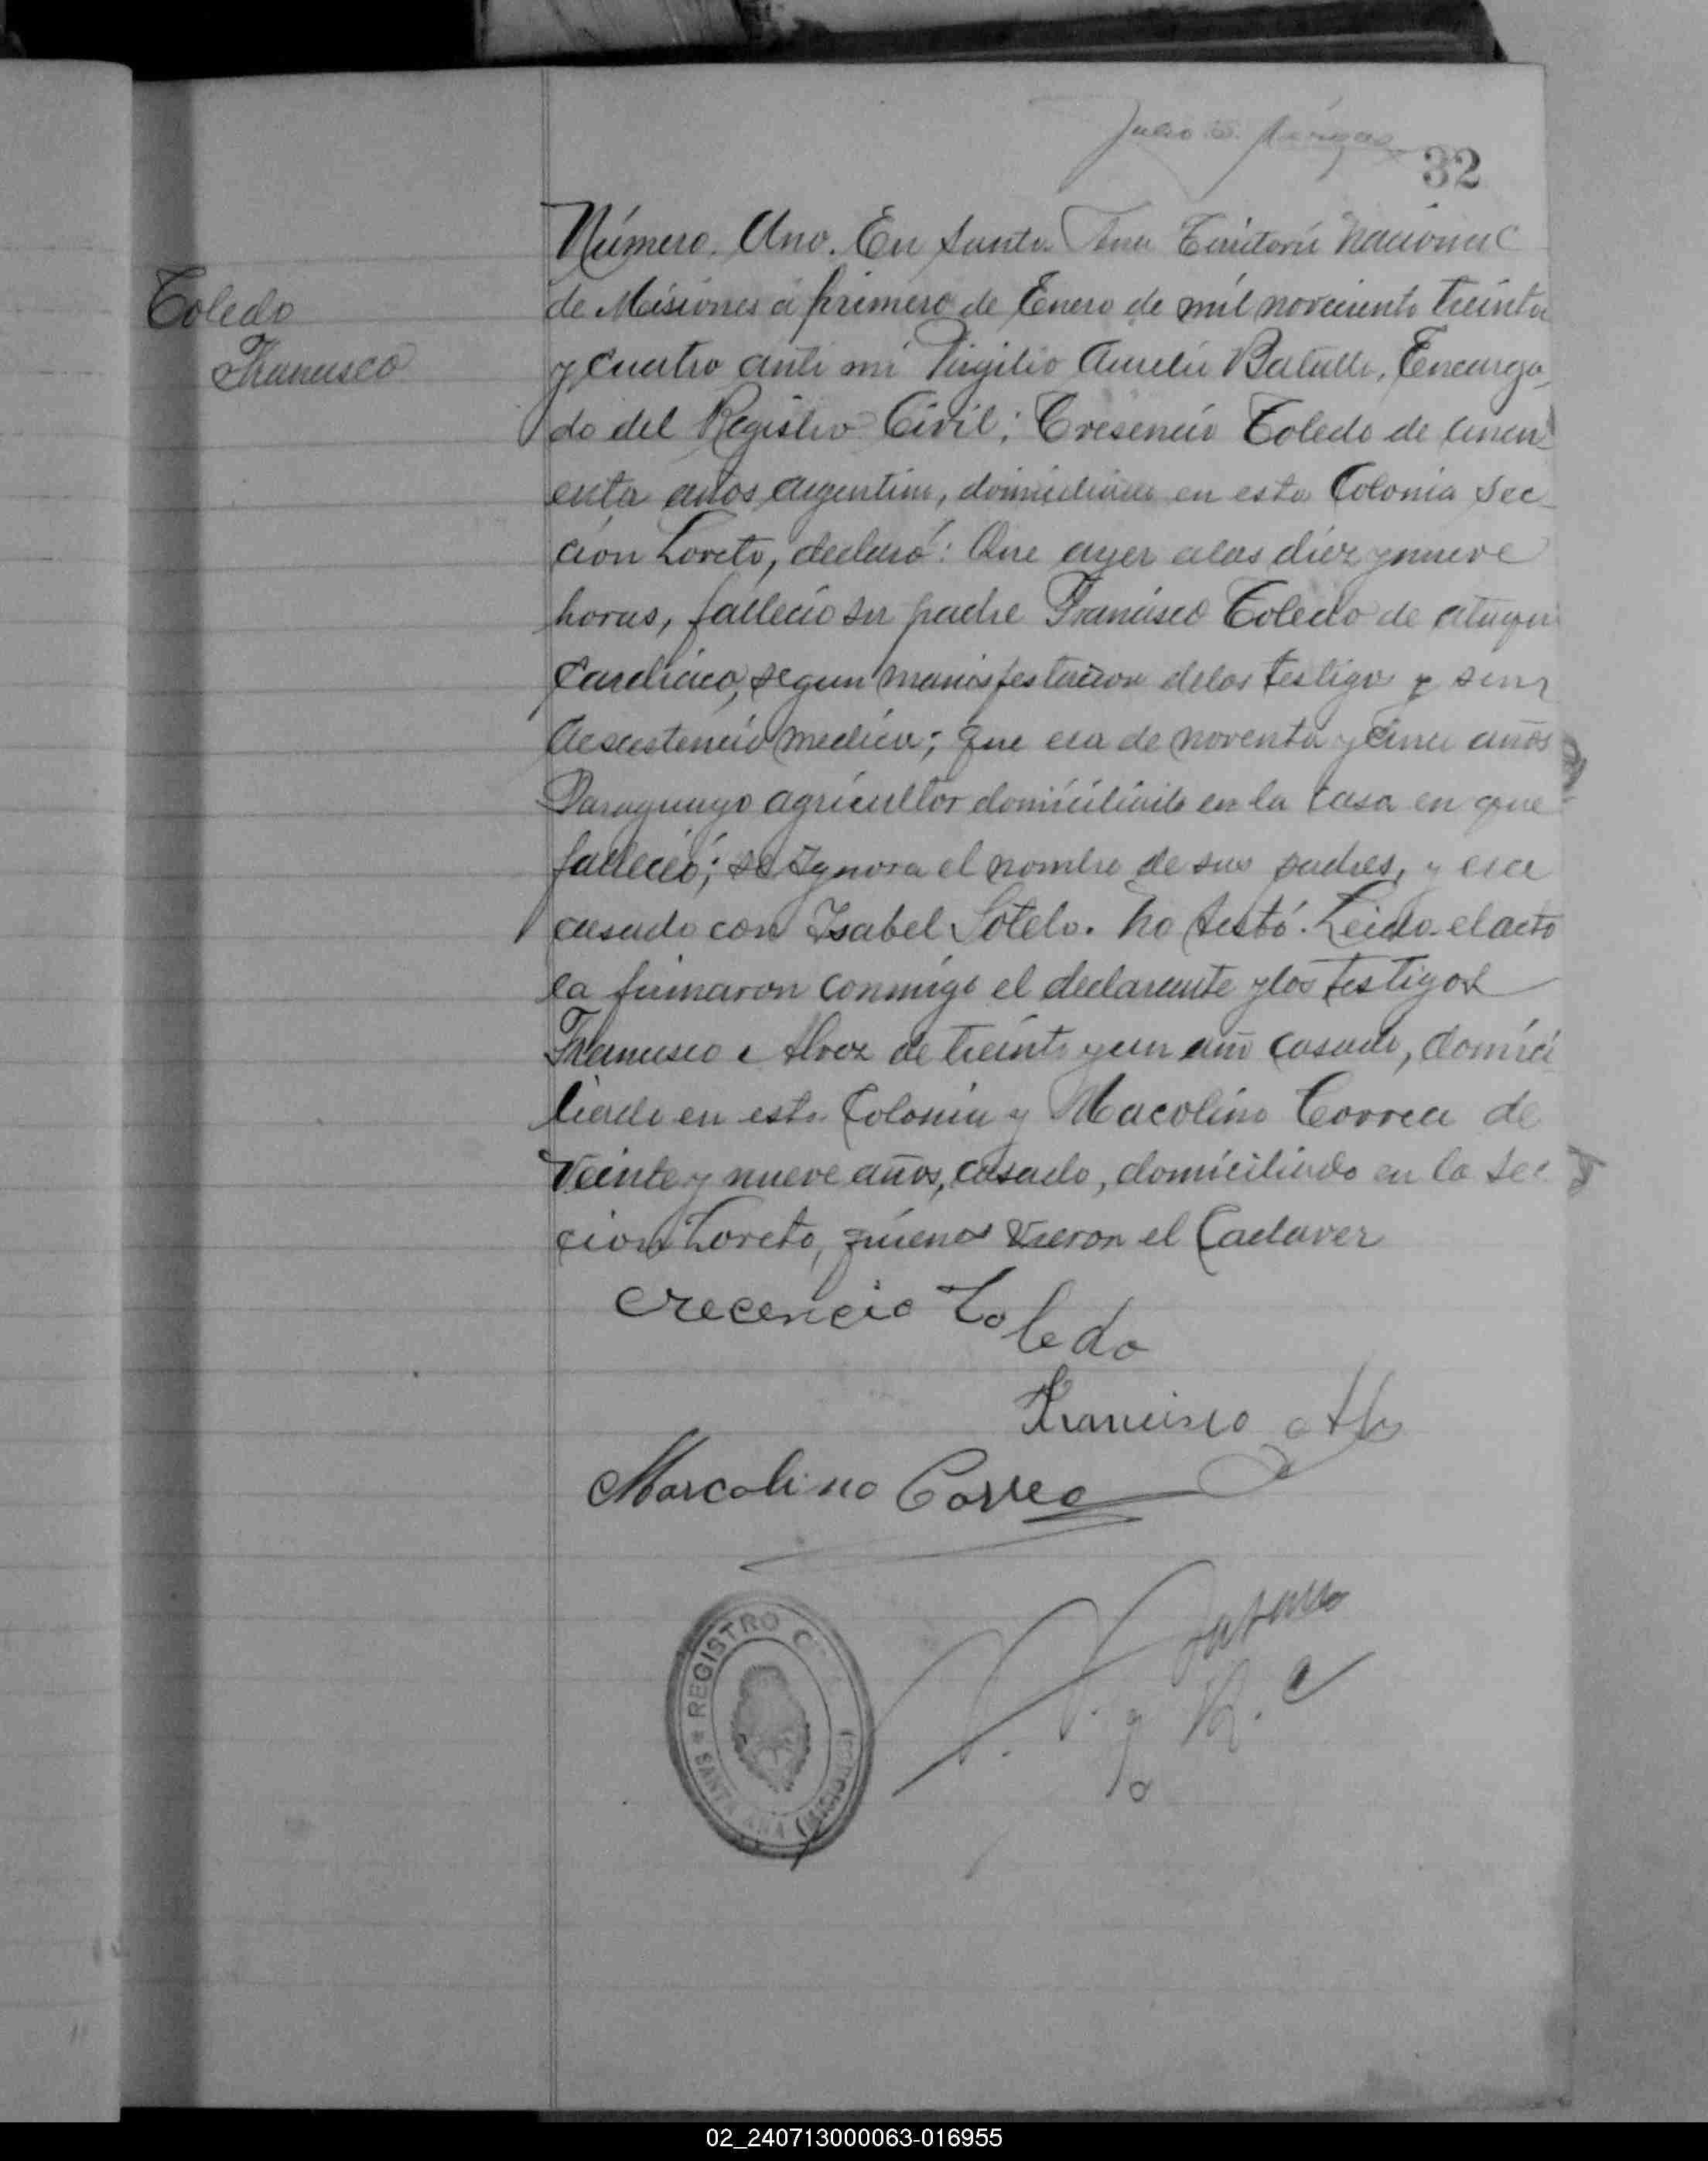 32
Toledo
Francisco
Número. Uno. En Santa Ana Territorio Nacional
de Misiones á primero de Enero de mil noveciento treinta
y cuatro ante mi Virgilio Aurelio Batalla, Encarga
do del Registro Civil; Cresencio Toledo de cincu
enta años argentino, domiciliado en esta Colonia Sec
cion Loreto, declaró: Que ayer alas diez y nueve
horas, fallecio su padre Francisco Toledo de ataque
Cardiaco, segun manisfestacion delos testigos y sin
Acsistencia medica; que era de noventa y cinco años
Paraguayo agricultor domiciliado en la casa en que
fallecio; se ignora el nombre de sus padres, y era
casado con Isabel Sotelo. No testó. Leida el acto
la firmaron conmigo el declarante y los testigos
Francisco Alvez de treinta y un año casado, domici
liado en esta Colonia y Macolino Correa de
Veinte y nueve años, casado, domiciliado en la Sec
cion Loreto, quienes vieron el Cadaver
Crecencio Toledo
Francisco
Marcolino Correa
REGISTRO
SANTA ANA (MISIONES)
02_240713000063-016955